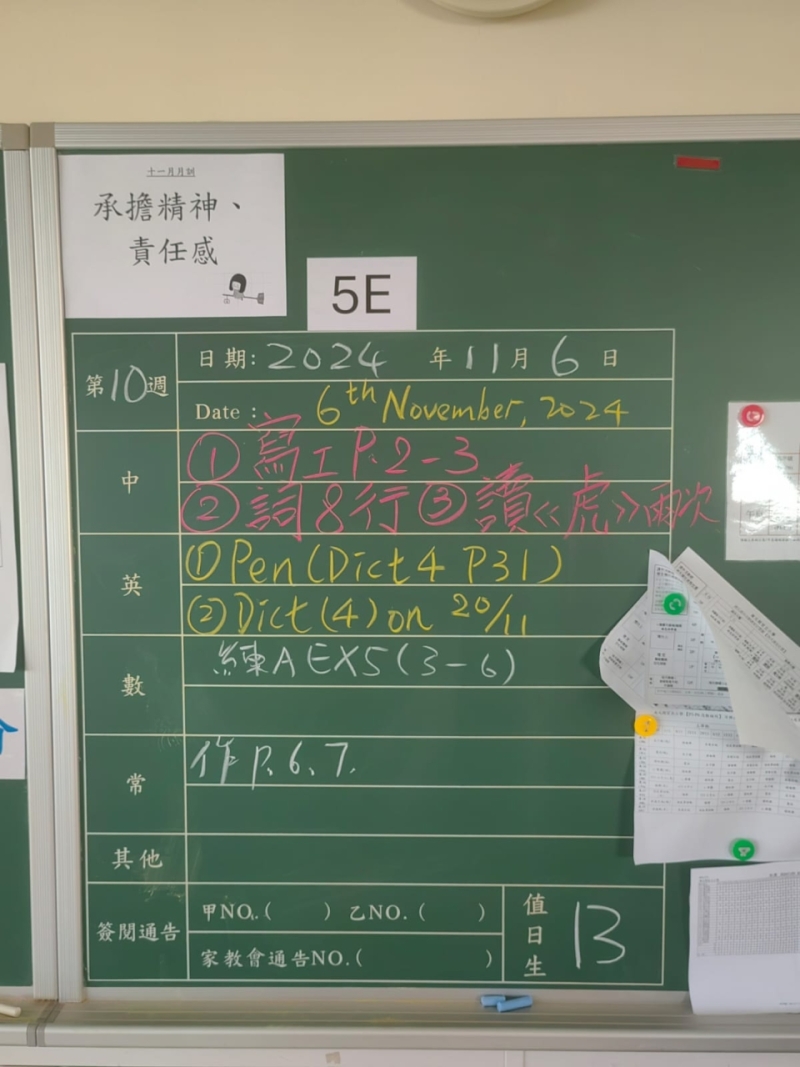 十一月月訓
承擔精神、
責任感
5E
第10週
日期: 2024 年 11 月 6 日
Date : 6th November, 2024
中
① 寫工 P.2-3
② 詞8行 ③ 讀《虎》兩次
英
① Pen (Dict 4 P31)
② Dict (4) on 20/11
數
練A EX5 (3-6)
常
作 P. 6、7.
其他
簽閱通告
甲NO.( ) 乙NO.( )
家教會通告NO.( )
值日生
13